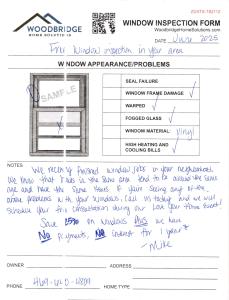 WOODBRIDGE
HOME SOLUTIONS
WINDOW INSPECTION FORM
WoodbridgeHomeSolutions.com
DATE June 2025
Free Window inspection in your area
WINDOW APPEARANCE/PROBLEMS
SAMPLE
SEAL FAILURE
WINDOW FRAME DAMAGE
WARPED
FOGGED GLASS
WINDOW MATERIAL: Vinyl
HIGH HEATING AND
COOLING BILLS
NOTES:
We recently finished window jobs in your neighborhood
We know that homes in the same area tend to be around the same
age and have the same issues. If your seeing any of the
above problems with your windows, call us today and we will
Schedule your free consultation during our Love Your Home Event!
Save on windows Plus we have
No payments, No interest for 1 year*
- Mike
OWNER
ADDRESS
PHONE
HOME TYPE